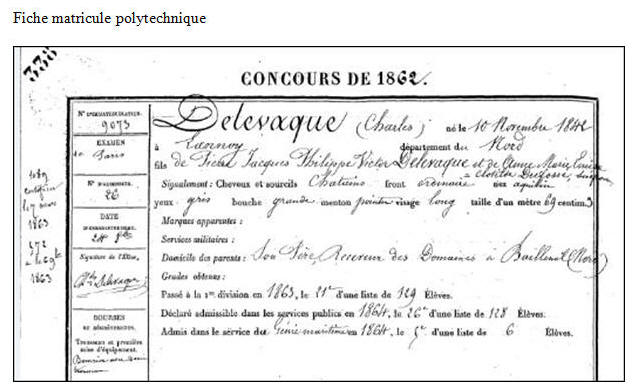 Fiche matricule polytechnique
338
CONCOURS DE 1862.
N° D'IMMATRICULATION.
9073
EXAMEN
de Paris
N° D'ADMISSION.
26
DATE
Signature de l'Élève.
Ch. Delevaque
BOURSES
Trousseau et première
mise d'équipement.
1863
1863
Delevaque (Charles) né le 10 Novembre 184
à département du Nord
fils de Pierre Jacques Philippe Victor Delevaque et de Anne Marie
Clotilde
Signalement: Cheveux et sourcils Chatains front ordinaire nez aquilin
yeux gris bouche grande menton pointu visage long taille d'un mètre 69 centim.
Marques apparentes:
Services militaires:
Domicile des parents: Son Père, Receveur des Domaines à Bailleul (Nord)
Grades obtenus:
Passé à la 1re division en 1863, le 21e d'une liste de 129 Élèves.
Déclaré admissible dans les services publics en 1864, le 26e d'une liste de 128 Élèves.
Admis dans le service du Génie maritime en 1864, le 5e d'une liste de 6 Élèves.